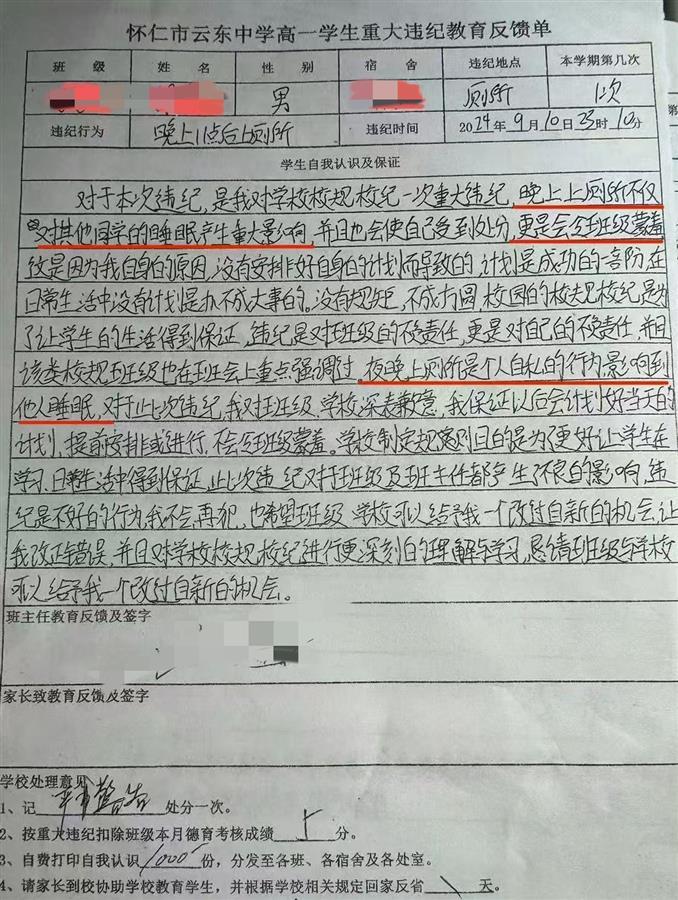 怀仁市云东中学高一学生重大违纪教育反馈单
班 级 姓 名 性 别 宿 舍 违纪地点 本学期第几次
男 厕所 1次
违纪行为 晚上11点后上厕所 违纪时间 2024年9月10日23时10分
学生自我认识及保证
对于本次违纪,是我对学校校规校纪一次重大违纪,晚上上厕所不仅
对其他同学的睡眠产生重大影响,并且也会使自己受到处分,更是会令班级蒙羞
这是因为我自身的原因,没有安排好自身的计划而导致的,计划是成功的一部阶,在
日常生活中没有计划是办不成大事的。没有规矩,不成方圆,校园的校规校纪是为
了让学生的生活得到保证,违纪是对班级的不负责任,更是对自己的不负责任,并且
该类校规班级也在班会上重点强调过,夜晚上厕所是个人自私的行为,影响到
他人睡眠,对于此次违纪,我对班级、学校深表歉意,我保证以后会计划好当天的
计划,提前安排或进行,不会令班级蒙羞。学校制定规章原则目的是为了更好让学生在
学习、日常生活中得到保证,此次违纪对于班级及班主任都产生了不良的影响,违
纪是不好的行为,我不会再犯,也希望班级、学校可以给予我一个改过自新的机会,让
我改正错误,并且对学校校规、校纪进行更深刻的理解与学习,恳请班级与学校
可以给予我一个改过自新的机会。
班主任教育反馈及签字
家长致教育反馈及签字
学校处理意见
1、记 严重警告 处分一次。
2、按重大违纪扣除班级本月德育考核成绩 分。
3、自费打印自我认识 1000 份,分发至各班、各宿舍及各处室。
4、请家长到校协助学校教育学生,并根据学校相关规定回家反省 \ 天。